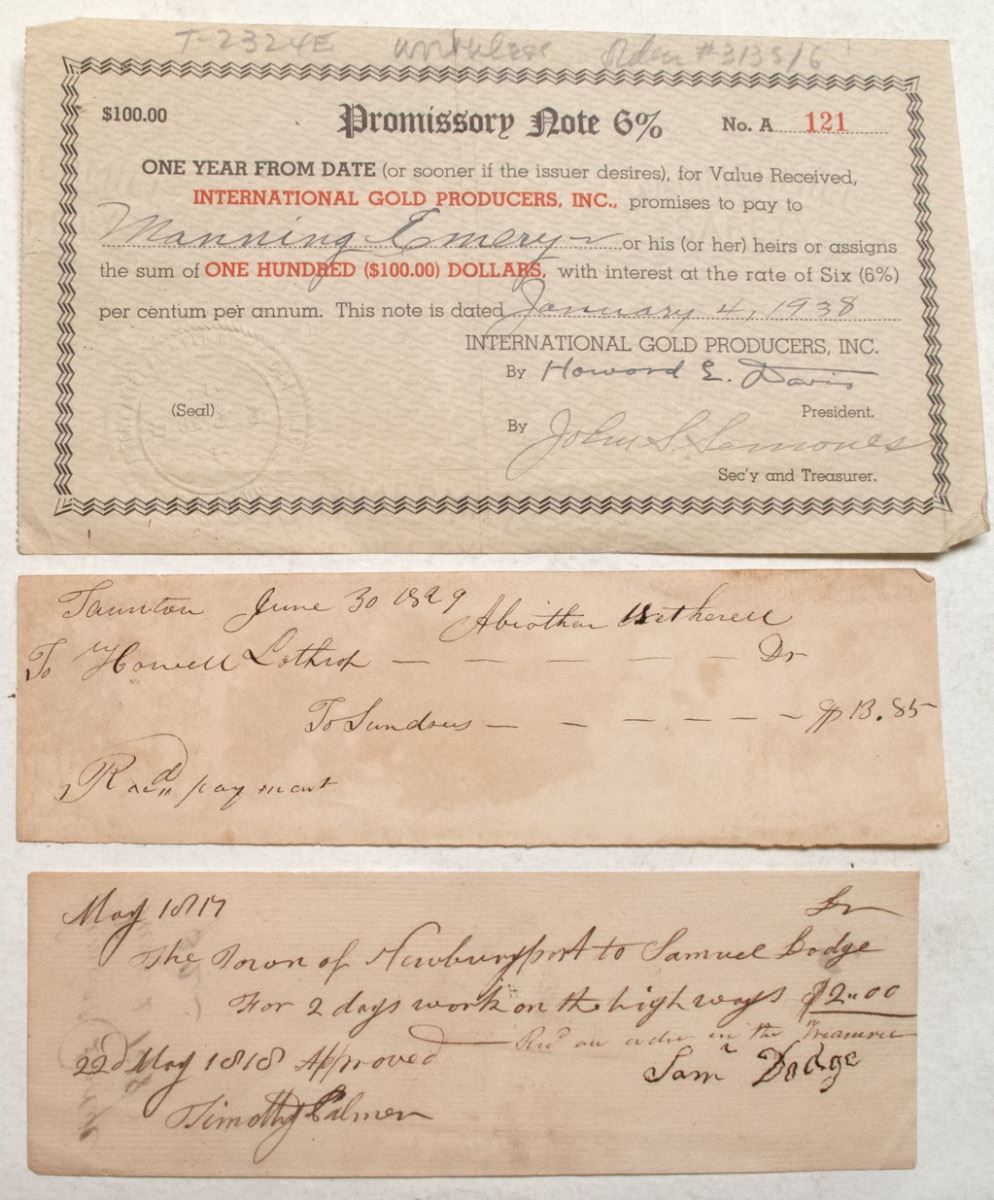 T-2324E worthless Order #313516
$100.00 Promissory Note 6% No. A 121
ONE YEAR FROM DATE (or sooner if the issuer desires), for Value Received,
INTERNATIONAL GOLD PRODUCERS, INC., promises to pay to
Manning Emery Jr or his (or her) heirs or assigns
the sum of ONE HUNDRED ($100.00) DOLLARS, with interest at the rate of Six (6%)
per centum per annum. This note is dated January 4, 1938
INTERNATIONAL GOLD PRODUCERS, INC.
By Howard E. Davis
President.
(Seal)
By John S. Semones
Sec'y and Treasurer.
Taunton June 30 1829 Abiather Wetherell
To Howell Lothrop — — — — — — Dr
To Sundries — — — — — — $13.85
Recd payment
May 1817 Dr
The Town of Newburyport to Samuel Dodge
For 2 days work on the highways $2"00
Recd an order on the Treasurer
22d May 1818 Approved
Saml Dodge
Timothy Palmer